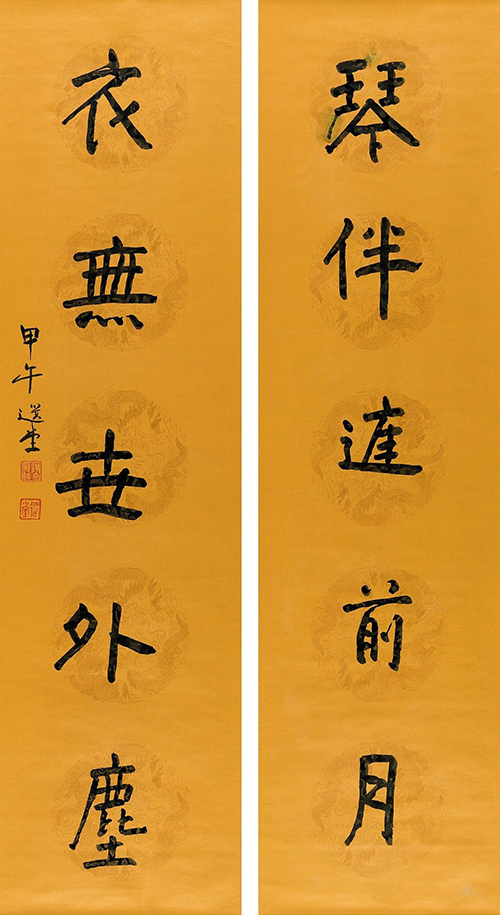 琴伴庭前月
衣無世外塵
甲午選堂